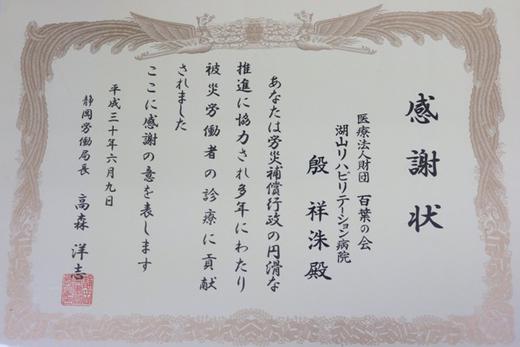 感謝状
医療法人財団 百葉の会
湖山リハビリテーション病院
殷祥洙殿
あなたは労災補償行政の円滑な
推進に協力され多年にわたり
被災労働者の診療に貢献
されました
ここに感謝の意を表します
平成三十年六月九日
静岡労働局長 高森洋志